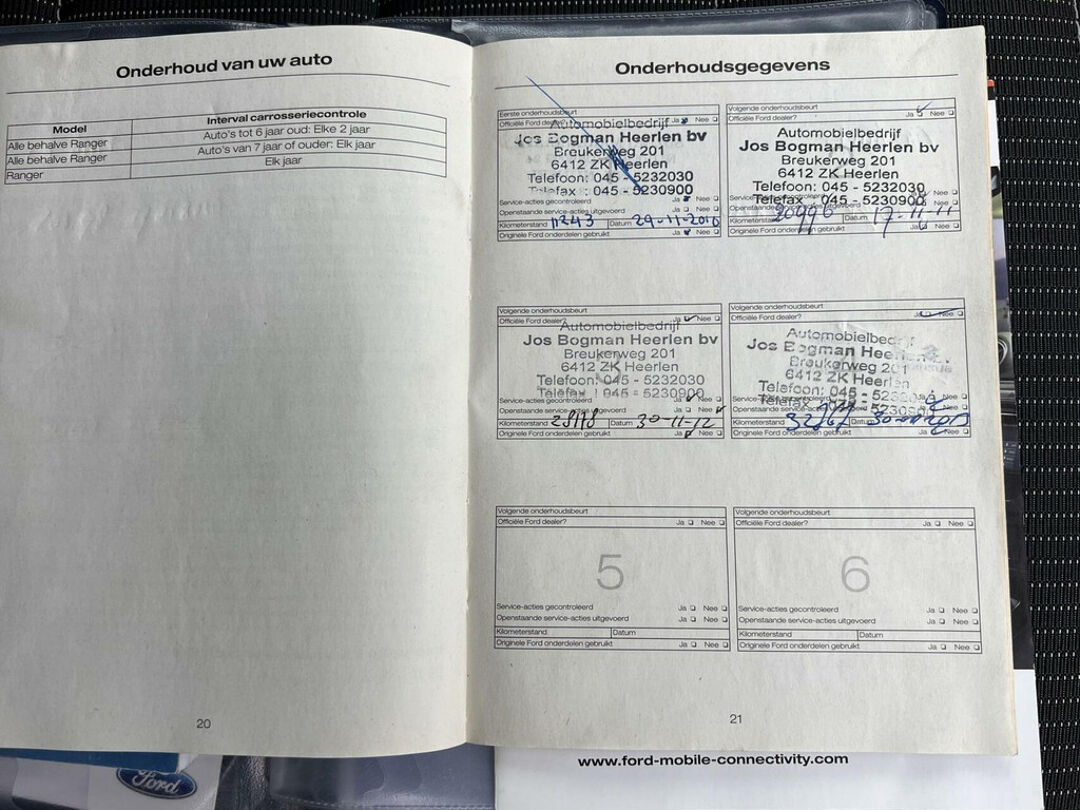 Onderhoud van uw auto
Model Interval carrosseriecontrole
Alle behalve Ranger Auto's tot 6 jaar oud: Elke 2 jaar
Alle behalve Ranger Auto's van 7 jaar of ouder: Elk jaar
Ranger Elk jaar
20
Onderhoudsgegevens
Eerste onderhoudsbeurt
Officiële Ford dealer? Ja Nee
Automobielbedrijf
Jos Bogman Heerlen bv
Breukerweg 201
6412 ZK Heerlen
Telefoon: 045 - 5232030
Telefax : 045 - 5230900
Service-acties gecontroleerd Ja Nee
Openstaande service-acties uitgevoerd Ja Nee
Kilometerstand 11243 Datum 29-11-2010
Originele Ford onderdelen gebruikt Ja Nee
Volgende onderhoudsbeurt
Officiële Ford dealer? Ja Nee
Automobielbedrijf
Jos Bogman Heerlen bv
Breukerweg 201
6412 ZK Heerlen
Telefoon: 045 - 5232030
Telefax : 045 - 5230900
Service-acties gecontroleerd Nee
Openstaande service-acties uitgevoerd Ja Nee
Kilometerstand Datum 17-11-11
Originele Ford onderdelen gebruikt Ja Nee
Volgende onderhoudsbeurt
Officiële Ford dealer? Ja Nee
Automobielbedrijf
Jos Bogman Heerlen bv
Breukerweg 201
6412 ZK Heerlen
Telefoon: 045 - 5232030
Telefax : 045 - 5230900
Service-acties gecontroleerd Ja Nee
Openstaande service-acties uitgevoerd Ja Nee
Kilometerstand 28178 Datum 30-11-12
Originele Ford onderdelen gebruikt Ja Nee
Volgende onderhoudsbeurt
Officiële Ford dealer? Ja Nee
Automobielbedrijf
Jos Bogman Heerlen bv
Breukerweg 201
6412 ZK Heerlen
Telefoon: 045 - 5232030
Telefax : 045 - 5230900
Service-acties gecontroleerd Ja Nee
Openstaande service-acties uitgevoerd Ja Nee
Kilometerstand Datum
Originele Ford onderdelen gebruikt Ja Nee
Volgende onderhoudsbeurt
Officiële Ford dealer? Ja Nee
5
Service-acties gecontroleerd Ja Nee
Openstaande service-acties uitgevoerd Ja Nee
Kilometerstand Datum
Originele Ford onderdelen gebruikt Ja Nee
Volgende onderhoudsbeurt
Officiële Ford dealer? Ja Nee
6
Service-acties gecontroleerd Ja Nee
Openstaande service-acties uitgevoerd Ja Nee
Kilometerstand Datum
Originele Ford onderdelen gebruikt Ja Nee
21
Ford
www.ford-mobile-connectivity.com